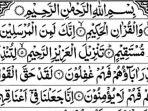 بِسْمِ اللَّهِ الرَّحْمَٰنِ الرَّحِيمِ
وَالْقُرْآنِ الْحَكِيمِ إِنَّكَ لَمِنَ الْمُرْسَلِينَ
مُسْتَقِيمٍ تَنزِيلَ الْعَزِيزِ الرَّحِيمِ
آبَاؤُهُمْ فَهُمْ غَافِلُونَ لَقَدْ حَقَّ الْقَوْلُ
فَهُمْ لَا يُؤْمِنُونَ إِنَّا جَعَلْنَا فِي